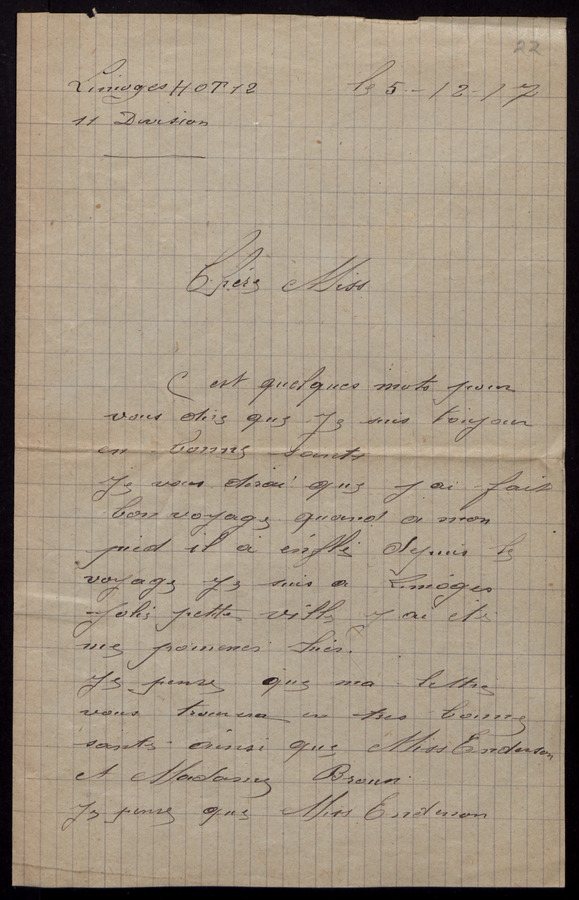 22
Limoges HOT 12 le 5-12-17
11 Division
Chère Miss
C est quelques mots pour
vous dire que Je suis toujour
en bonne santé
Je vous dirai que j ai fait
bon voyage quand a mon
pied il a énflé depuis le
voyage Je suis a Limóges
Jolie petite ville j ai été
me promener hier.
Je pense que ma lettre
vous trouvera en tres bonne
santé ainsi que Miss Enderson
et Madame Broun
Je pense que Miss Enderson